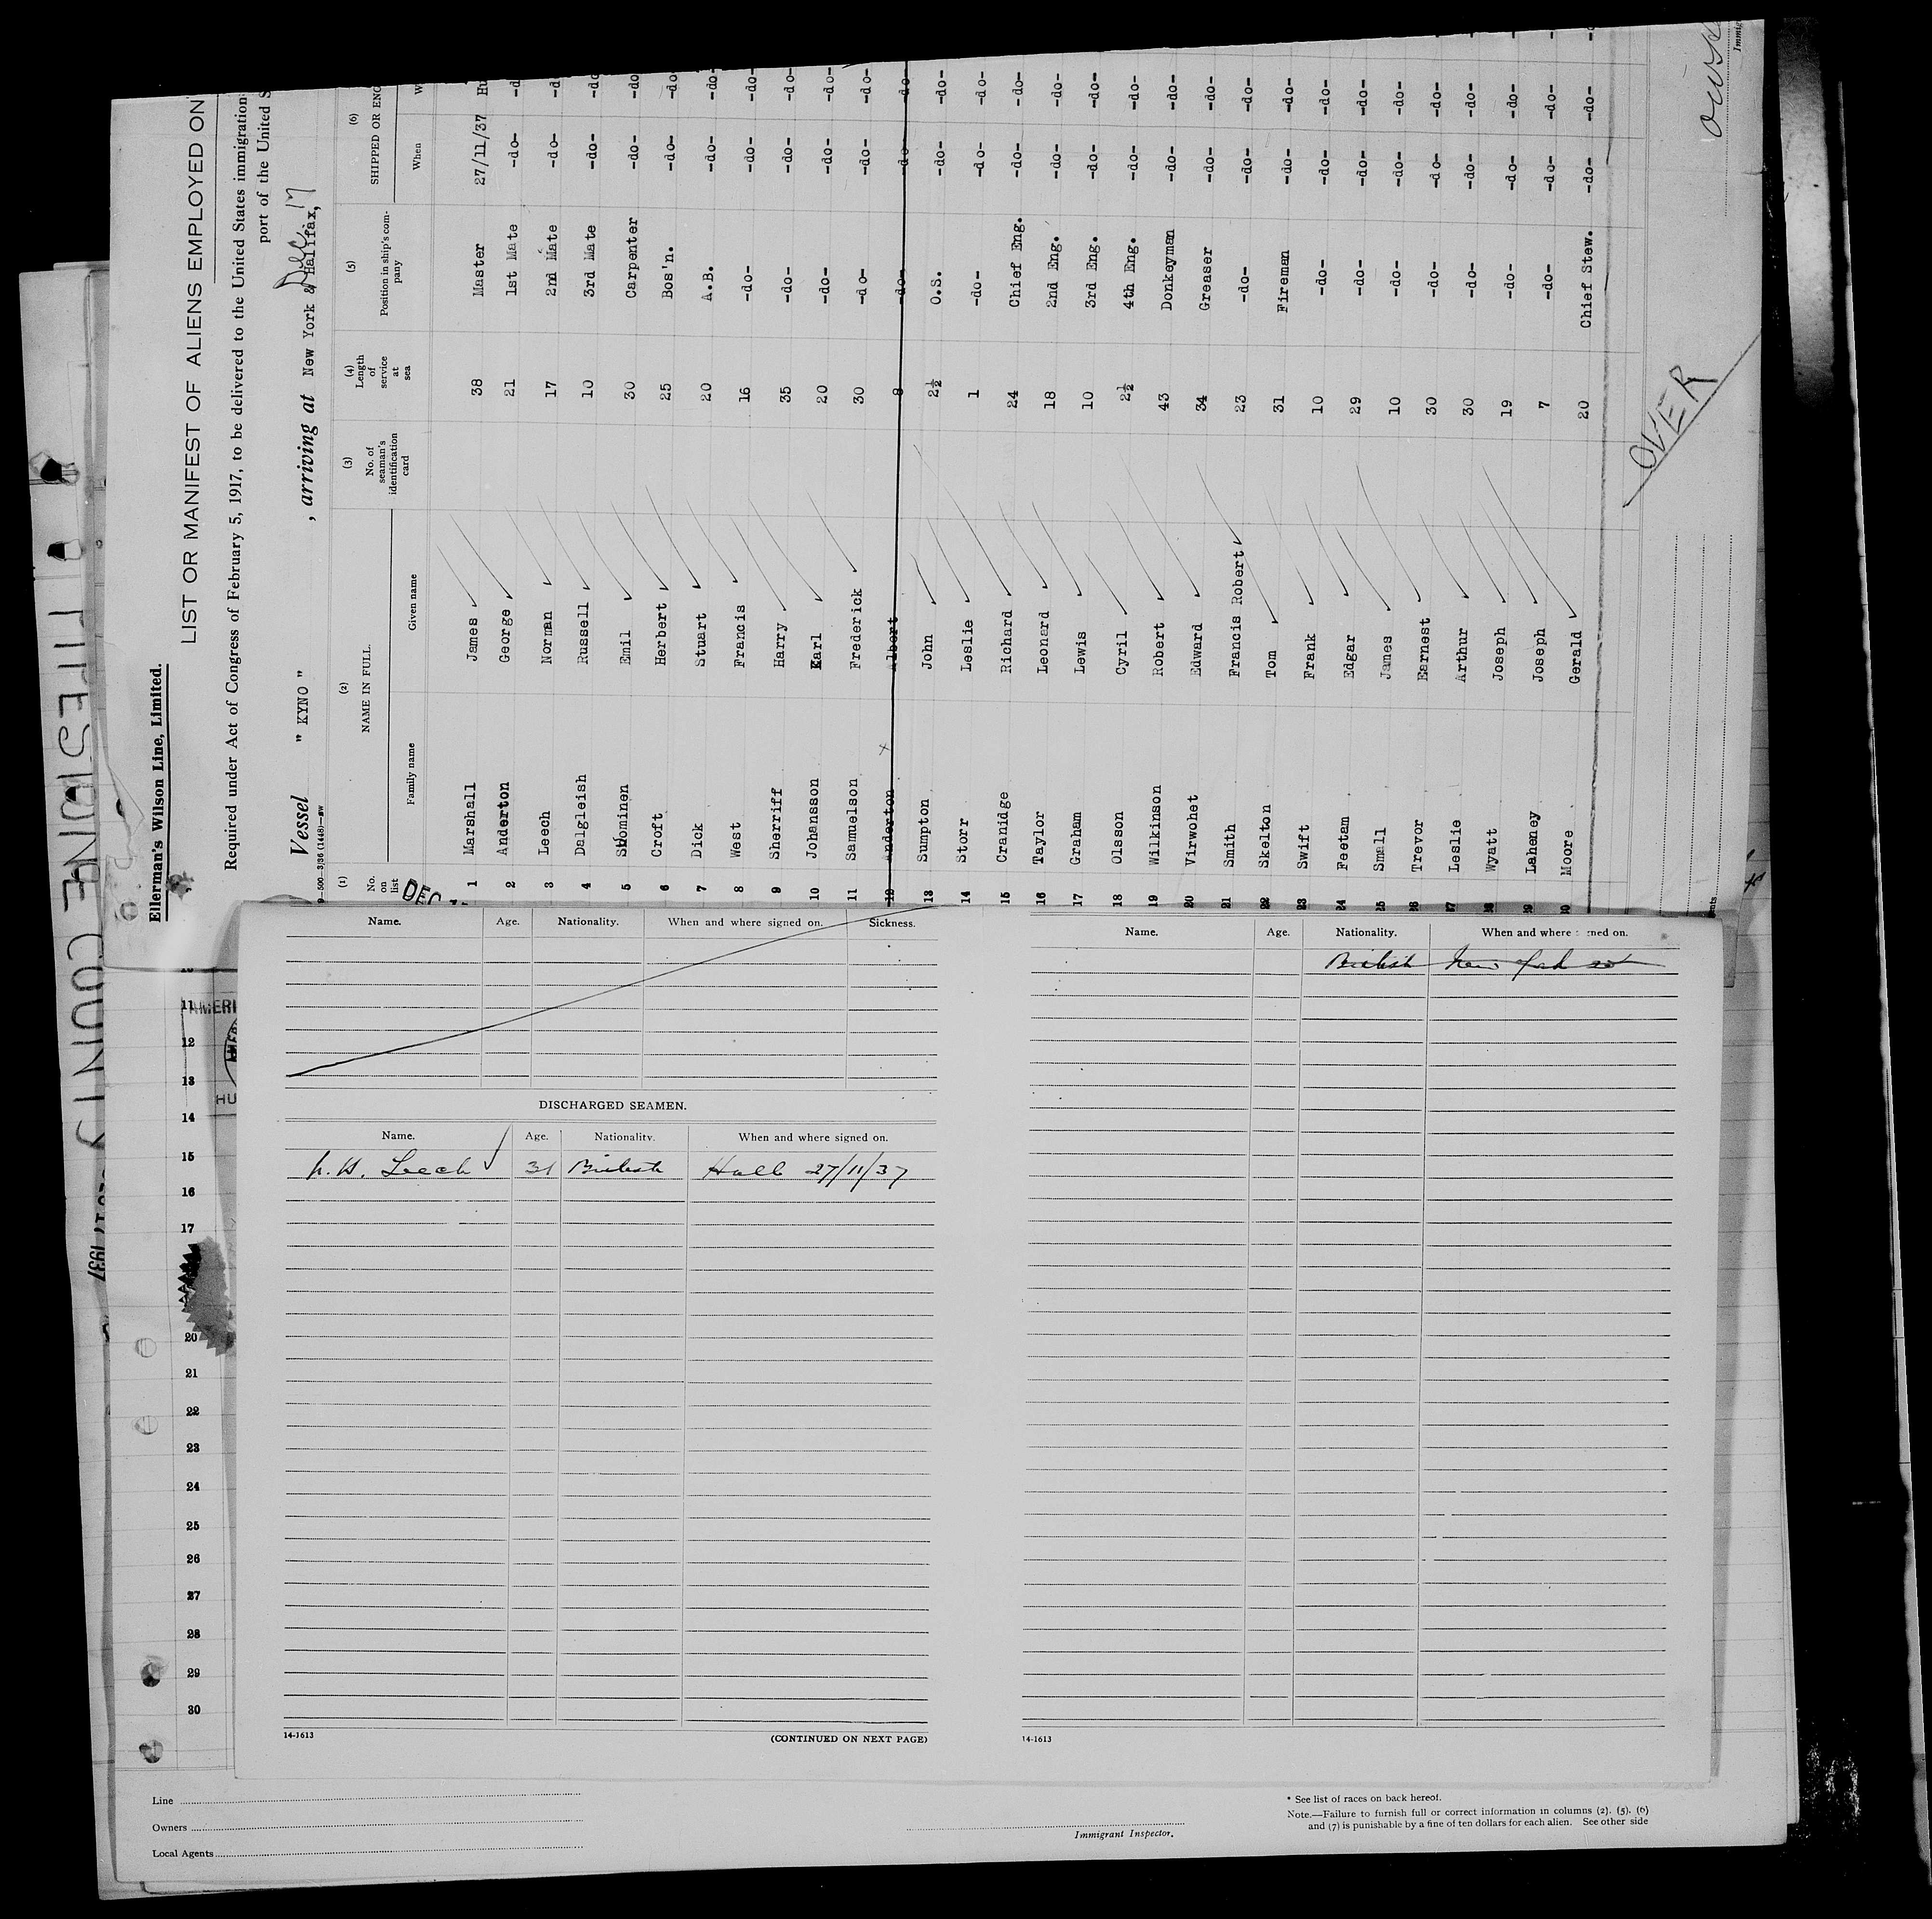 Ellerman's Wilson Line, Limited.
LIST OR MANIFEST OF ALIENS EMPLOYED ON
Required under Act of Congress of February 5, 1917, to be delivered to the United States immigration
port of the United S
Vessel " KYNO " , arriving at New York & Halifax, Dec 17
(1) No. on list
(2) NAME IN FULL.
Family name Given name
(3) No. of seaman's identification card
(4) Length of service at sea
(5) Position in ship's company
(6) SHIPPED OR ENG
When W
DEC
1 Marshall James 38 Master 27/11/37 Hu
2 Anderton George 21 1st Mate -do- -d
3 Leech Norman 17 2nd Mate -do- -d
4 Dalgleish Russell 10 3rd Mate -do- -do
5 Emil 30 Carpenter -do- -do
6 Croft Herbert 25 Bos'n. -do- -do
7 Dick Stuart 20 A.B. -do- -do-
8 West Francis 16 -do- -do- -do-
9 Sherriff Harry 35 -do- -do- -do-
10 Johansson Karl 20 -do- -do- -do-
11 Samuelson Frederick 30 -do- -do- -do-
12 Anderton Albert 8 -do- -do- -do-
13 Sumpton John 2½ O.S. -do- -do-
14 Storr Leslie 1 -do- -do- -do-
15 Cranidge Richard 24 Chief Eng. -do- -do-
16 Taylor Leonard 18 2nd Eng. -do- -do-
17 Graham Lewis 10 3rd Eng. -do- -do-
18 Olsson Cyril 2½ 4th Eng. -do- -do-
19 Wilkinson Robert 43 Donkeyman -do- -do-
20 Virwohet Edward 34 Greaser -do- -do-
21 Smith Francis Robert 23 -do- -do- -do-
22 Skelton Tom 31 Fireman -do- -do-
23 Swift Frank 10 -do- -do- -do-
24 Feetam Edgar 29 -do- -do- -do-
25 Small James 10 -do- -do- -do-
26 Trevor Earnest 30 -do- -do- -do-
27 Leslie Arthur 30 -do- -do- -do-
28 Wyatt Joseph 19 -do- -do- -do-
29 Laheney Joseph 7 -do- -do- -do-
30 Moore Gerald 20 Chief Stew. -do- -do-
OVER
Name. Age. Nationality. When and where signed on. Sickness.
DISCHARGED SEAMEN.
Name. Age. Nationality. When and where signed on.
N. H. Leech 31 British Hull 27/11/37
14-1613 (CONTINUED ON NEXT PAGE)
Name. Age. Nationality. When and where signed on.
British New York
14-1613
PIPESTONE COUNTY
1937
AMERI
HU
11
12
13
14
15
16
17
20
21
22
23
24
25
26
27
28
29
30
Line
Owners
Local Agents
Immigrant Inspector.
* See list of races on back hereof.
Note.—Failure to furnish full or correct information in columns (2), (5), (6)
and (7) is punishable by a fine of ten dollars for each alien. See other side